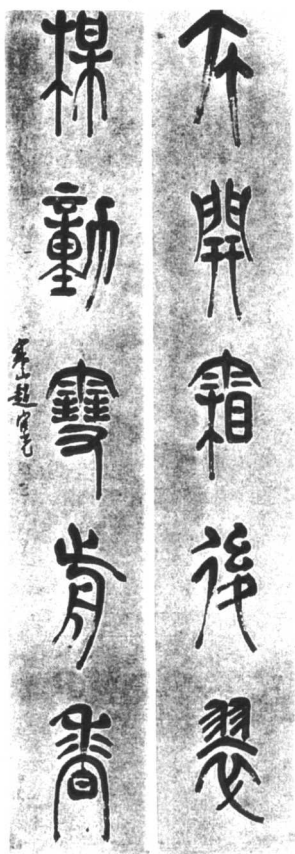 竹開霜後翠
楳動雪前香
寒山趙宧光